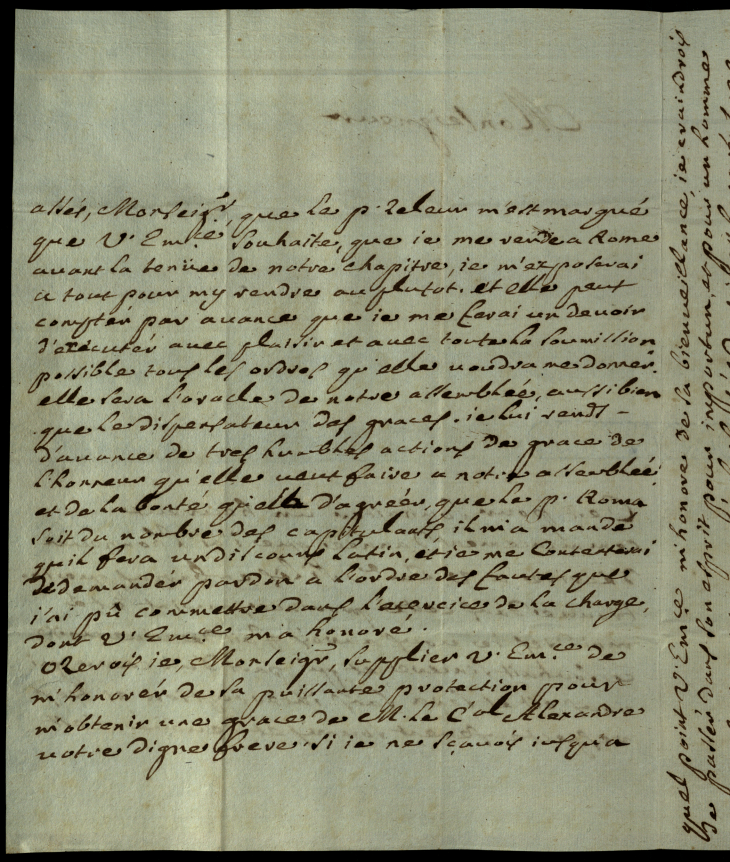 assés, Monseigr, que le p. Zeleur m'est marqué
que V. Emce souhaite, que ie me rende a Rome
avant la tenüe de notre chapitre, ie m'exposerai
a tout pour my rendre au plutot. et elle peut
compter par avance que ie me ferai un devoir
d'exécuter avec plaisir et avec toute la soumission
possible tous les ordres qu'elle voudra me donner.
elle sera l'oracle de notre assemblée, aussi bien
que le dispensateur des graces. ie lui rends
d'avance de tres humbles actions de grace de
l'honneur qu'elle veut faire a notre assemblée
et de la bonté qu'elle d'agréér, que le p. Roma
soit du nombre des capitulants il m'a mandé
qu'il fera un discours latin, et ie me contenterai
de demander pardon a l'ordre des fautes que
j'ai pû commettre dans l'exercice de la charge,
dont V. Emce m'a honoré.
Oserois ie, Monseigr, supplier V. Emce de
m'honorér de sa puissante protection pour
m'obtenir une grace de M. le Cal Alexandre
votre digne frere. si ie ne sçavois iusqu'a
quel point V. Emce m'honore de sa bienveillance, ie craindrois
de passér dans son esprit pour importun, et pour un homme